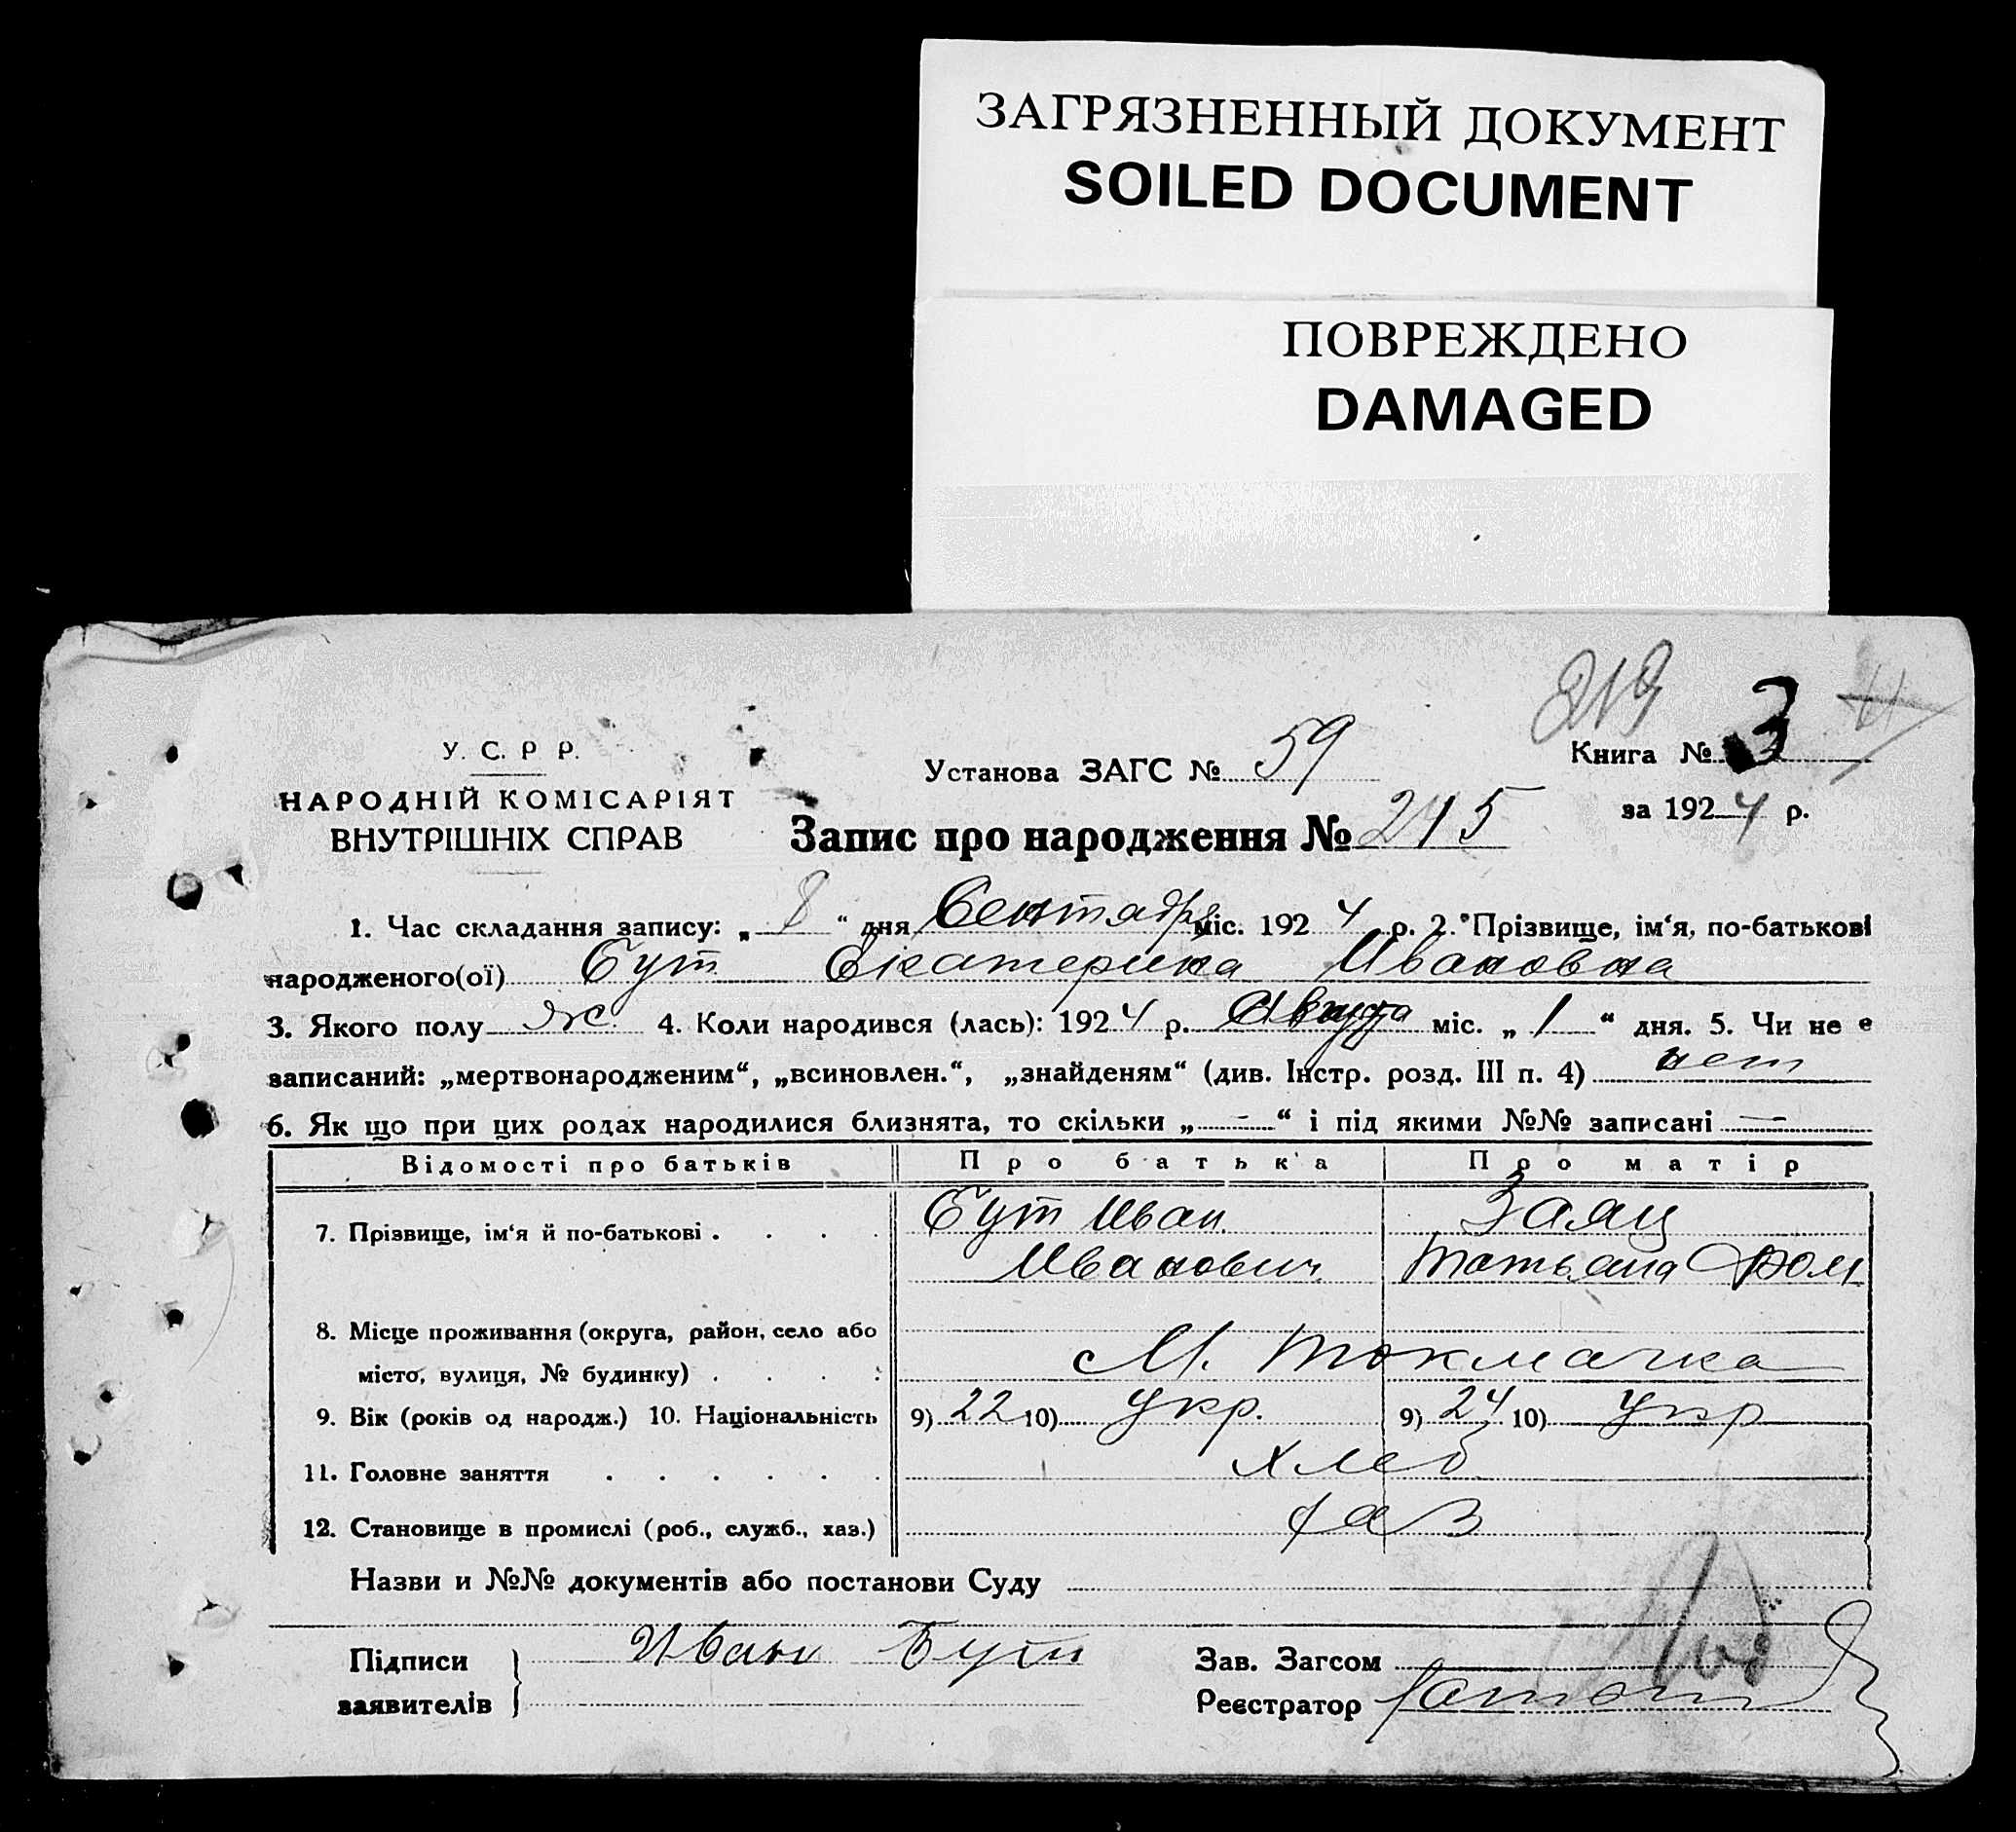 ЗАГРЯЗНЕННЫЙ ДОКУМЕНТ
SOILED DOCUMENT
ПОВРЕЖДЕНО
DAMAGED
У. С. Р Р.
НАРОДНІЙ КОМІСАРІЯТ
ВНУТРІШНІХ СПРАВ
Установа ЗАГС № 59
Книга № 3
за 1924 р.
Запис про народження № 215
1. Час складання запису: „ 8 “ дня Сентября міс. 1924 р. 2. Прізвище, ім‘я, по-батькові
народженого(ої) Бут Екатерина Ивановна
3. Якого полу ж. 4. Коли народився (лась): 1924 р. Августа міс. „ 1 “ дня. 5. Чи не е
записаний: „мертвонародженим“, „всиновлен.“, „знайденям“ (див. Інстр. розд. III п. 4) нет
6. Як що при цих родах народилися близнята, то скільки „ - “ і під якими №№ записані —
Відомості про батьків Про батька Про матір
7. Прізвище, ім‘я й по-батькові . . . . Бут Иван Заяц
Иванович Татьяна Фом
8. Місце проживання (округа, район, село або
місто, вулиця, № будинку) . . . : М. Токмачка
9. Вік (років од народж.) 10. Національність 9) 22 10) укр. 9) 24 10) укр
11. Головне заняття . . . . . . хлеб
12. Становище в промислі (роб., служб., хаз.) хаз
Назви и №№ документів або постанови Суду
Підписи Иван Бут Зав. Загсом
заявителів Реєстратор